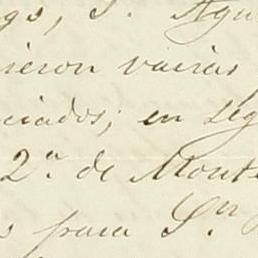 gs, S. Agu
ieron varias
ciados; en seg
2ª de Mont
s para Sn